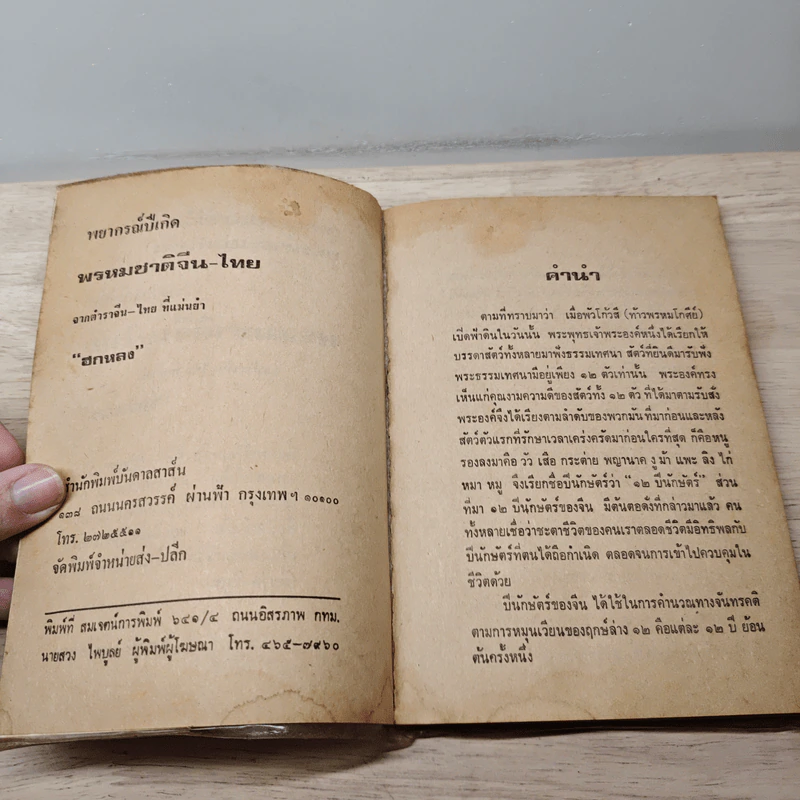 พยากรณ์ปีเกิด
พรหมชาติจีน-ไทย
จากตำราจีน-ไทย ที่แม่นยำ
"ฮกหลง"
สำนักพิมพ์บันดาลสาส์น
๑๓๘ ถนนนครสวรรค์ ผ่านฟ้า กรุงเทพฯ ๑๐๑๐๐
โทร. ๒๘๒๕๕๑๑
จัดพิมพ์จำหน่ายส่ง-ปลีก
พิมพ์ที่ สมเจตน์การพิมพ์ ๖๔๑/๔ ถนนอิสรภาพ กทม.
นายสวง ไพบูลย์ ผู้พิมพ์ผู้โฆษณา โทร. ๔๖๕-๗๙๖๐
คำนำ
ตามที่ทราบมาว่า เมื่อพัวโกวัสี (ท้าวพรหมโกศีย์)
เปิดฟ้าดินในวันนั้น พระพุทธเจ้าพระองค์หนึ่งได้เรียกให้
บรรดาสัตว์ทั้งหลายมาฟังธรรมเทศนา สัตว์ที่ยินดีมารับฟัง
พระธรรมเทศนามีอยู่เพียง ๑๒ ตัวเท่านั้น พระองค์ทรง
เห็นแก่คุณงามความดีของสัตว์ทั้ง ๑๒ ตัว ที่ได้มาตามรับสั่ง
พระองค์จึงได้เรียงตามลำดับของพวกมัน ที่มาก่อนและหลัง
สัตว์ตัวแรกที่รักษาเวลาเคร่งครัดมาก่อนใครที่สุด ก็คือหนู
รองลงมาคือ วัว เสือ กระต่าย พญานาค งู ม้า แพะ ลิง ไก่
หมา หมู จึงเรียกชื่อปีนักษัตร์ว่า "๑๒ ปีนักษัตร์" ส่วน
ที่มา ๑๒ ปีนักษัตร์ของจีน มีต้นตอดั่งที่กล่าวมาแล้ว คน
ทั้งหลายเชื่อว่าชะตาชีวิตของคนเราตลอดชีวิตมีอิทธิพลกับ
ปีนักษัตร์ที่ตนได้ถือกำเนิด ตลอดจนการเข้าไปควบคุมใน
ชีวิตด้วย
ปีนักษัตร์ของจีน ได้ใช้ในการคำนวณทางจันทรคติ
ตามการหมุนเวียนของฤกษ์ล่าง ๑๒ คือแต่ละ ๑๒ ปี ย้อน
ต้นครั้งหนึ่ง